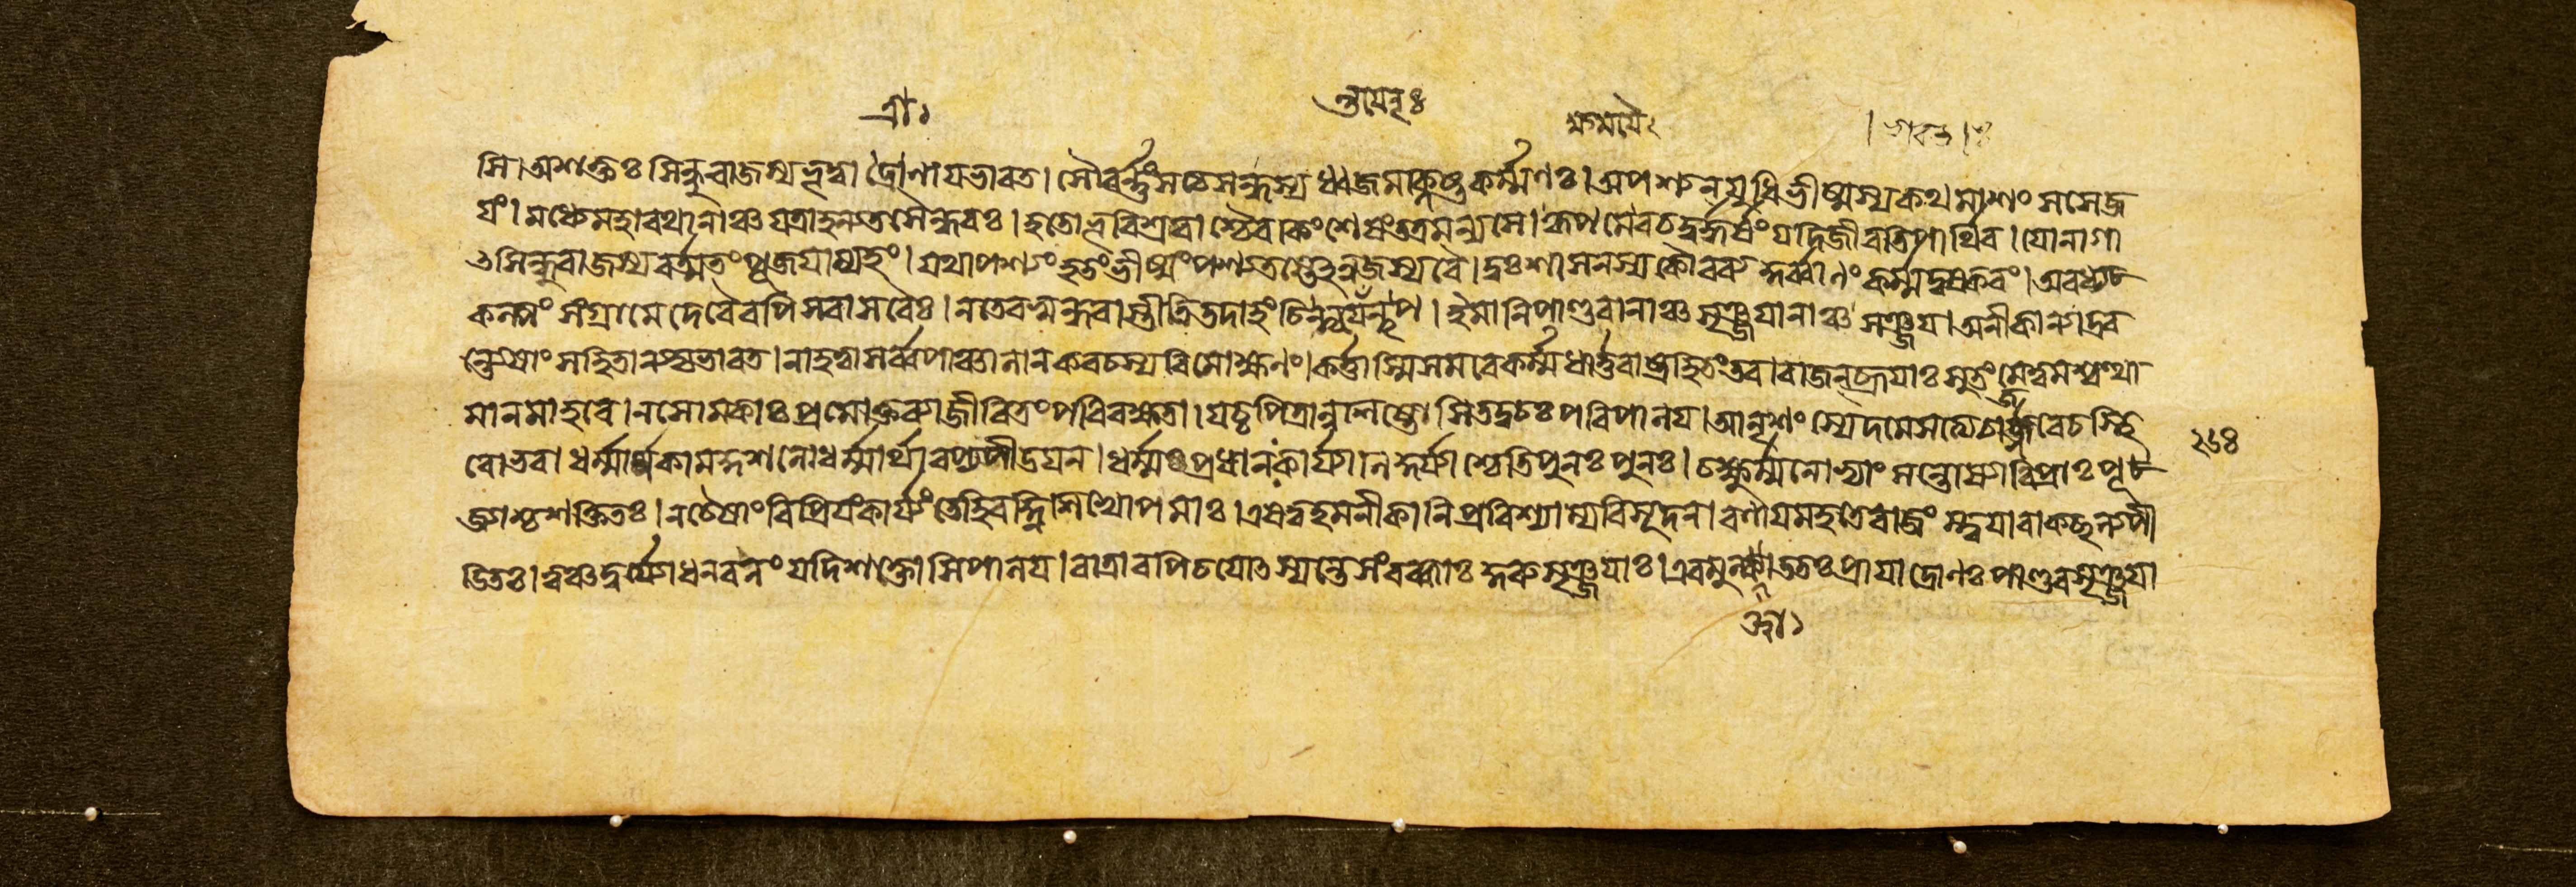 সি। অশক্তঃ সিন্ধুরাজস্য ভূত্বা ত্রাণায ভারত। সৌবর্ণ্ণং সত্যসন্ধস্য ধ্বজমক্লিষ্টকর্ম্মণঃ। অপশ্যন্ যুধি ভীষ্মস্য কথমাশংসসে জ
যং। মধ্যে মহারথানাঞ্চ যত্রাহন্যত সৈন্ধবঃ। হতো ভূরিশ্রবাশ্চৈব কিং শেষং তত্র মন্যসে। কৃপ এব চ দুর্দ্ধর্ষং যদি জীবতি পার্থিব। যো নাগা
ৎ সিন্ধুরাজস্য বর্ত্ম তং পূজযাম্যহং। যথাপশ্যং হতং ভীষ্মং পশ্যতস্তেঽনুজস্য বৈ। দুঃশাসনস্য কৌরব্য কুর্ব্বাণং কর্ম্ম দুষ্করং। অবধ্য
কল্পং সংগ্রামে দেবৈরপি সবাসবৈঃ। ন তে বসুন্ধরাস্তীতি তদাহং চিন্তযে নৃপ। ইমানি পাণ্ডবানাঞ্চ সৃঞ্জযানাঞ্চ সঞ্জয। অনীকান্যাদ্রব
ন্তে মাং সহিতান্যদ্য ভারত। নাহত্বা সর্ব্বপাঞ্চালান কবচস্য বিমোক্ষণং। কর্ত্তাস্মি সমরে কর্ম্ম ধার্ত্তরাষ্ট্র হিতং তব। রাজন্ ব্রূযাঃ সুতং মে ত্বমশ্বত্থা
মানমাহবে। ন সোমকাঃ প্রমোক্তব্যা জীবিতং পরিরক্ষতা। যচ্চ পিত্রানুশিষ্টোসি তদ্বচঃ পরিপালয। আনৃশংস্যে দমে সত্যে চার্জ্জবে চ স্থি
রো ভব। ধর্ম্মার্থকামকুশলো ধর্ম্মার্থাবপ্যপীডযন। ধর্ম্মপ্রধানং কার্য্যাণি কুর্য্যাশ্চেতি পুনঃ পুনঃ। চক্ষুর্ম্মনোভ্যাং সন্তোষ্যা বিপ্রাঃ পূ
জ্যাশ্চ শক্তিতঃ। ন চৈষাং বিপ্রিযং কার্য্যং তে হি বহ্নিশিখোপমাঃ। এষ ত্বহমনীকানি প্রবিশ্যাম্যরিসূদন। রণায মহতে রাজংস্ত্বযা বাকছল্যপী
ডিতঃ। ত্বঞ্চ দুর্য্যোধন বলং যদি শক্তোসি পালয। রাত্রাবপি চ যোৎস্যন্তে সংরব্ধাঃ কুরুসৃঞ্জযাঃ। এবমুক্ত্বা ততঃ প্রাযাদ্রোণঃ পাণ্ডবসৃঞ্জযা